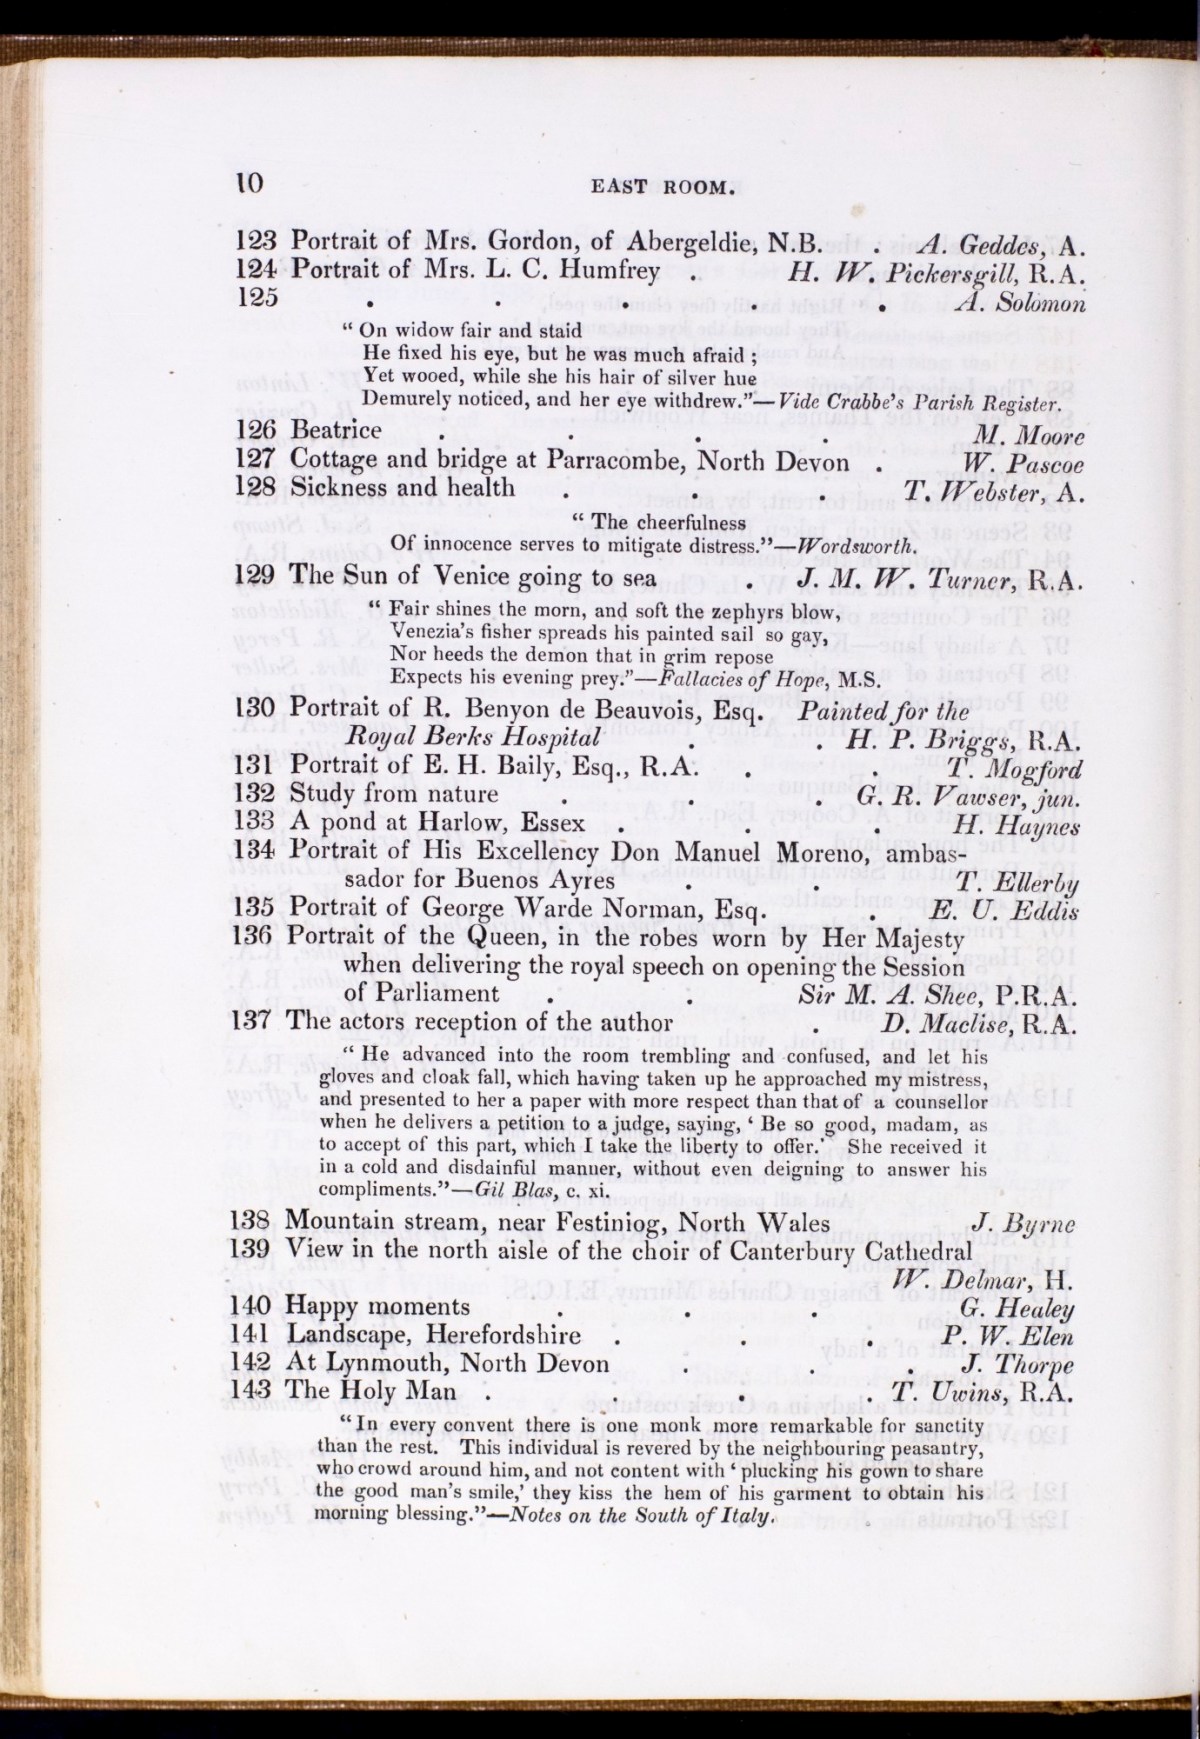 10 EAST ROOM.
123 Portrait of Mrs. Gordon, of Abergeldie, N.B. . A. Geddes, A.
124 Portrait of Mrs. L. C. Humfrey . H. W. Pickersgill, R.A.
125 . . . . . A. Solomon
“ On widow fair and staid
He fixed his eye, but he was much afraid ;
Yet wooed, while she his hair of silver hue
Demurely noticed, and her eye withdrew.”—Vide Crabbe's Parish Register.
126 Beatrice . . . . M. Moore
127 Cottage and bridge at Parracombe, North Devon . W. Pascoe
128 Sickness and health . . . T. Webster, A.
“ The cheerfulness
Of innocence serves to mitigate distress.”—Wordsworth.
129 The Sun of Venice going to sea . J. M. W. Turner, R.A.
“ Fair shines the morn, and soft the zephyrs blow,
Venezia's fisher spreads his painted sail so gay,
Nor heeds the demon that in grim repose
Expects his evening prey.”—Fallacies of Hope, M.S.
130 Portrait of R. Benyon de Beauvois, Esq. Painted for the
Royal Berks Hospital . . H. P. Briggs, R.A.
131 Portrait of E. H. Baily, Esq., R.A. . . T. Mogford
132 Study from nature . . . G. R. Vawser, jun.
133 A pond at Harlow, Essex . . . H. Haynes
134 Portrait of His Excellency Don Manuel Moreno, ambas-
sador for Buenos Ayres . . T. Ellerby
135 Portrait of George Warde Norman, Esq. . E. U. Eddis
136 Portrait of the Queen, in the robes worn by Her Majesty
when delivering the royal speech on opening the Session
of Parliament . . Sir M. A. Shee, P.R.A.
137 The actors reception of the author . D. Maclise, R.A.
“ He advanced into the room trembling and confused, and let his
gloves and cloak fall, which having taken up he approached my mistress,
and presented to her a paper with more respect than that of a counsellor
when he delivers a petition to a judge, saying, ‘ Be so good, madam, as
to accept of this part, which I take the liberty to offer.’ She received it
in a cold and disdainful manner, without even deigning to answer his
compliments.”—Gil Blas, c. xi.
138 Mountain stream, near Festiniog, North Wales J. Byrne
139 View in the north aisle of the choir of Canterbury Cathedral
W. Delmar, H.
140 Happy moments . . . G. Healey
141 Landscape, Herefordshire . . . P. W. Elen
142 At Lynmouth, North Devon . . . J. Thorpe
143 The Holy Man . . . . T. Uwins, R.A.
“ In every convent there is one monk more remarkable for sanctity
than the rest. This individual is revered by the neighbouring peasantry,
who crowd around him, and not content with ‘ plucking his gown to share
the good man's smile,’ they kiss the hem of his garment to obtain his
morning blessing.”—Notes on the South of Italy.